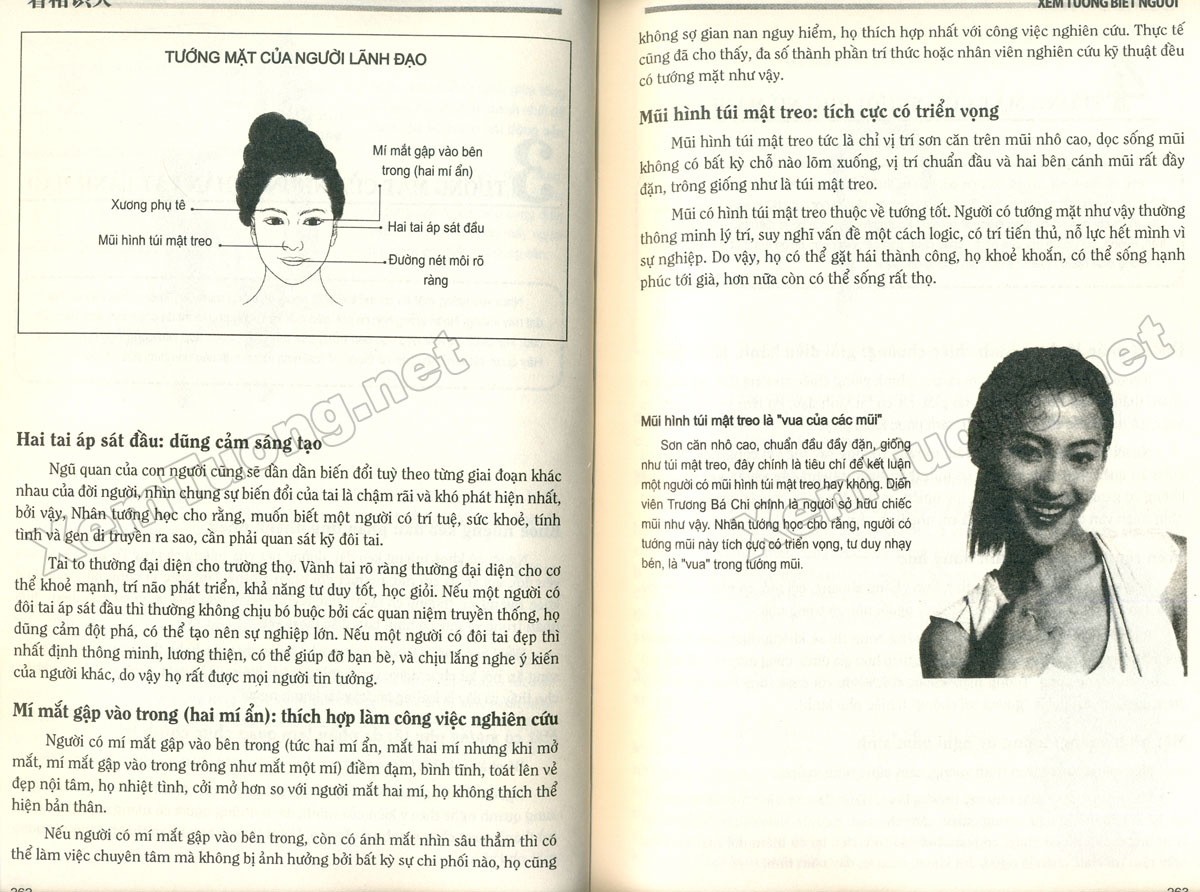 看相识人
TƯỚNG MẶT CỦA NGƯỜI LÃNH ĐẠO
Mí mắt gập vào bên
trong (hai mí ẩn)
Xương phụ tê
Hai tai áp sát đầu
Mũi hình túi mật treo
Đường nét môi rõ
ràng
Hai tai áp sát đầu: dũng cảm sáng tạo
Ngũ quan của con người cũng sẽ dần dần biến đổi tuỳ theo từng giai đoạn khác
nhau của đời người, nhìn chung sự biến đổi của tai là chậm rãi và khó phát hiện nhất,
bởi vậy, Nhân tướng học cho rằng, muốn biết một người có trí tuệ, sức khoẻ, tính
tình và gen di truyền ra sao, cần phải quan sát kỹ đôi tai.
Tai to thường đại diện cho trường thọ. Vành tai rõ ràng thường đại diện cho cơ
thể khoẻ mạnh, trí não phát triển, khả năng tư duy tốt, học giỏi. Nếu một người có
đôi tai áp sát đầu thì thường không chịu bó buộc bởi các quan niệm truyền thống, họ
dũng cảm đột phá, có thể tạo nên sự nghiệp lớn. Nếu một người có đôi tai đẹp thì
nhất định thông minh, lương thiện, có thể giúp đỡ bạn bè, và chịu lắng nghe ý kiến
của người khác, do vậy họ rất được mọi người tin tưởng.
Mí mắt gập vào trong (hai mí ẩn): thích hợp làm công việc nghiên cứu
Người có mí mắt gập vào bên trong (tức hai mí ẩn, mắt hai mí nhưng khi mở
mắt, mí mắt gập vào trong trông như mắt một mí) điềm đạm, bình tĩnh, toát lên vẻ
đẹp nội tâm, họ nhiệt tình, cởi mở hơn so với người mắt hai mí, họ không thích thể
hiện bản thân.
Nếu người có mí mắt gập vào bên trong, còn có ánh mắt nhìn sâu thẳm thì có
thể làm việc chuyên tâm mà không bị ảnh hưởng bởi bất kỳ sự chi phối nào, họ cũng
262
XEM TƯỚNG BIẾT NGƯỜI
không sợ gian nan nguy hiểm, họ thích hợp nhất với công việc nghiên cứu. Thực tế
cũng đã cho thấy, đa số thành phần trí thức hoặc nhân viên nghiên cứu kỹ thuật đều
có tướng mặt như vậy.
Mũi hình túi mật treo: tích cực có triển vọng
Mũi hình túi mật treo tức là chỉ vị trí sơn căn trên mũi nhô cao, dọc sống mũi
không có bất kỳ chỗ nào lõm xuống, vị trí chuẩn đầu và hai bên cánh mũi rất đầy
đặn, trông giống như là túi mật treo.
Mũi có hình túi mật treo thuộc về tướng tốt. Người có tướng mặt như vậy thường
thông minh lý trí, suy nghĩ vấn đề một cách logic, có trí tiến thủ, nỗ lực hết mình vì
sự nghiệp. Do vậy, họ có thể gặt hái thành công, họ khoẻ khoắn, có thể sống hạnh
phúc tới già, hơn nữa còn có thể sống rất thọ.
Mũi hình túi mật treo là "vua của các mũi"
Sơn căn nhô cao, chuẩn đầu đầy đặn, giống
như túi mật treo, đây chính là tiêu chí để kết luận
một người có mũi hình túi mật treo hay không. Diễn
viên Trương Bá Chi chính là người sở hữu chiếc
mũi như vậy. Nhân tướng học cho rằng, người có
tướng mũi này tích cực có triển vọng, tư duy nhạy
bén, là "vua" trong tướng mũi.
263
XemTuong.net
XemTuong.net